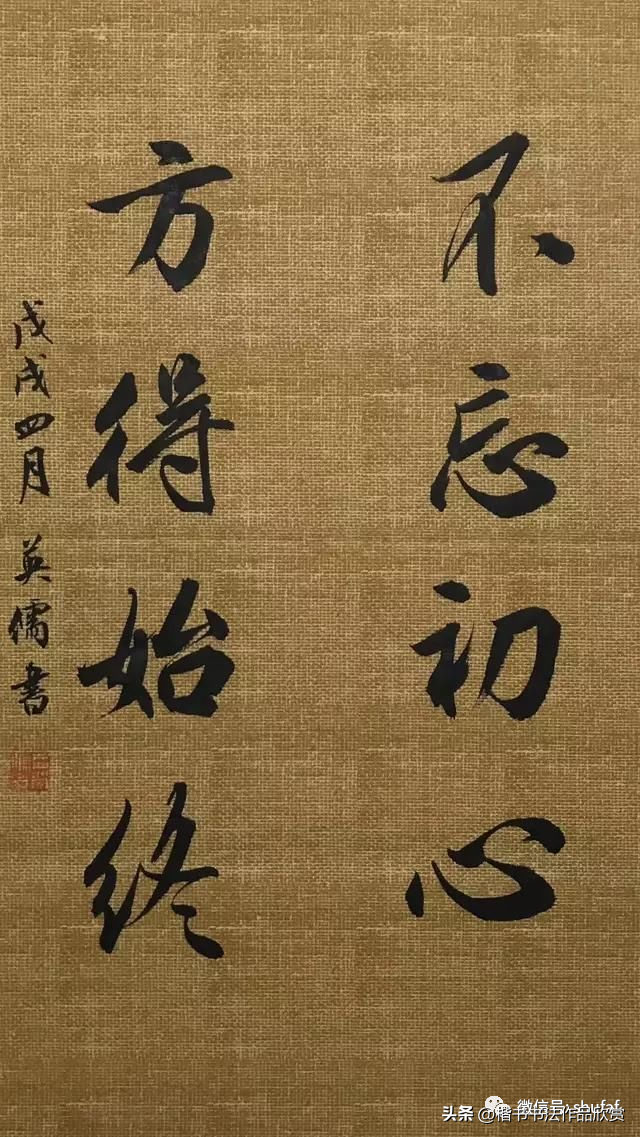 不忘初心
方得始终
戊戌四月英儒书
微信号: shufaf
头条 @楷书书法作品欣赏